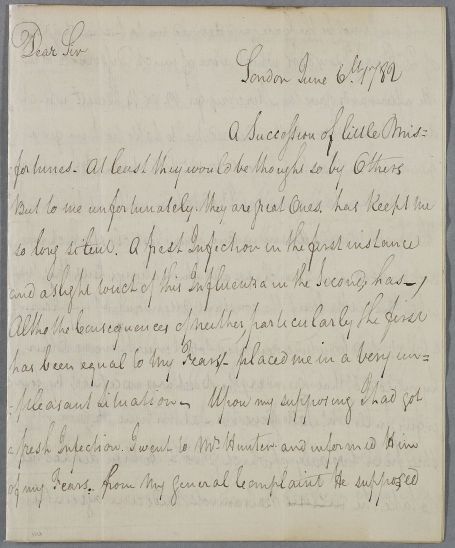 Dear Sir
London June 6th 1782
A Succession of little Mis=
fortunes. At least they would be thought so by Others
But to me unfortunately they are great Ones. has Keept me
so long silent. A fresh Infection in the first instance
and a slight touch of this Influenza in the Second has,
Altho the Consequences of neither particularly the first
has been equal to my Fears, placed me in a very un=
=pleasant Situation. Upon my supposing I had got
a fresh Infection. I went to Mr Hunter and informed Him
of my Fears. from my general Complaint He supposed